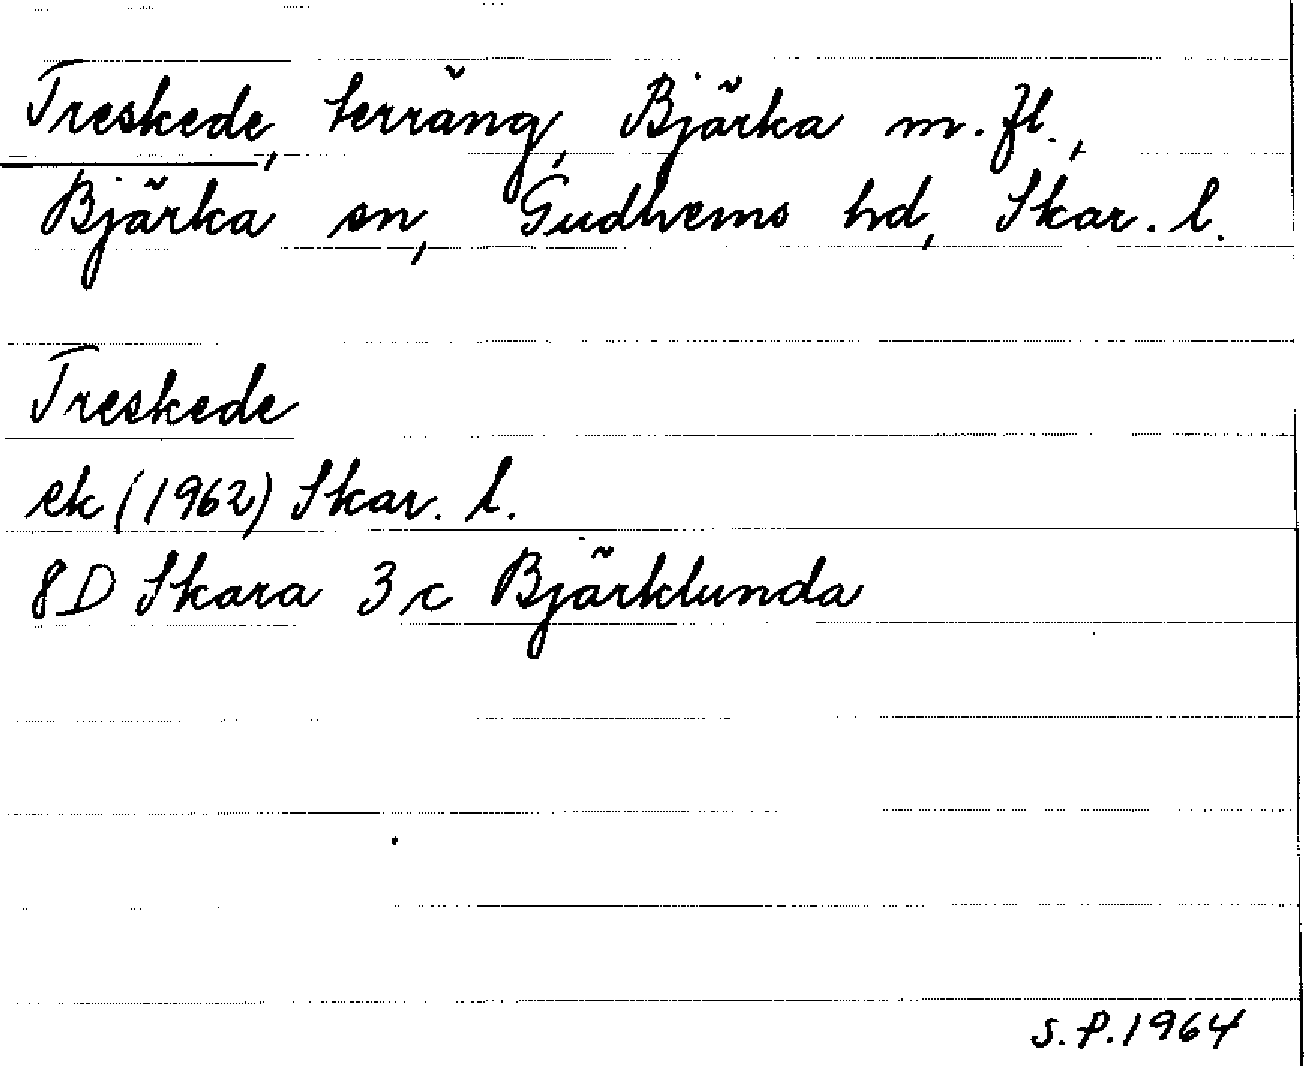 Treskede, terräng, Bjärka m. fl.,
Bjärka sn, Gudhems hd, Skar. l.
Treskede
ek (1962) Skar. l.
8D Skara 3c Bjärklunda
S. P. 1964